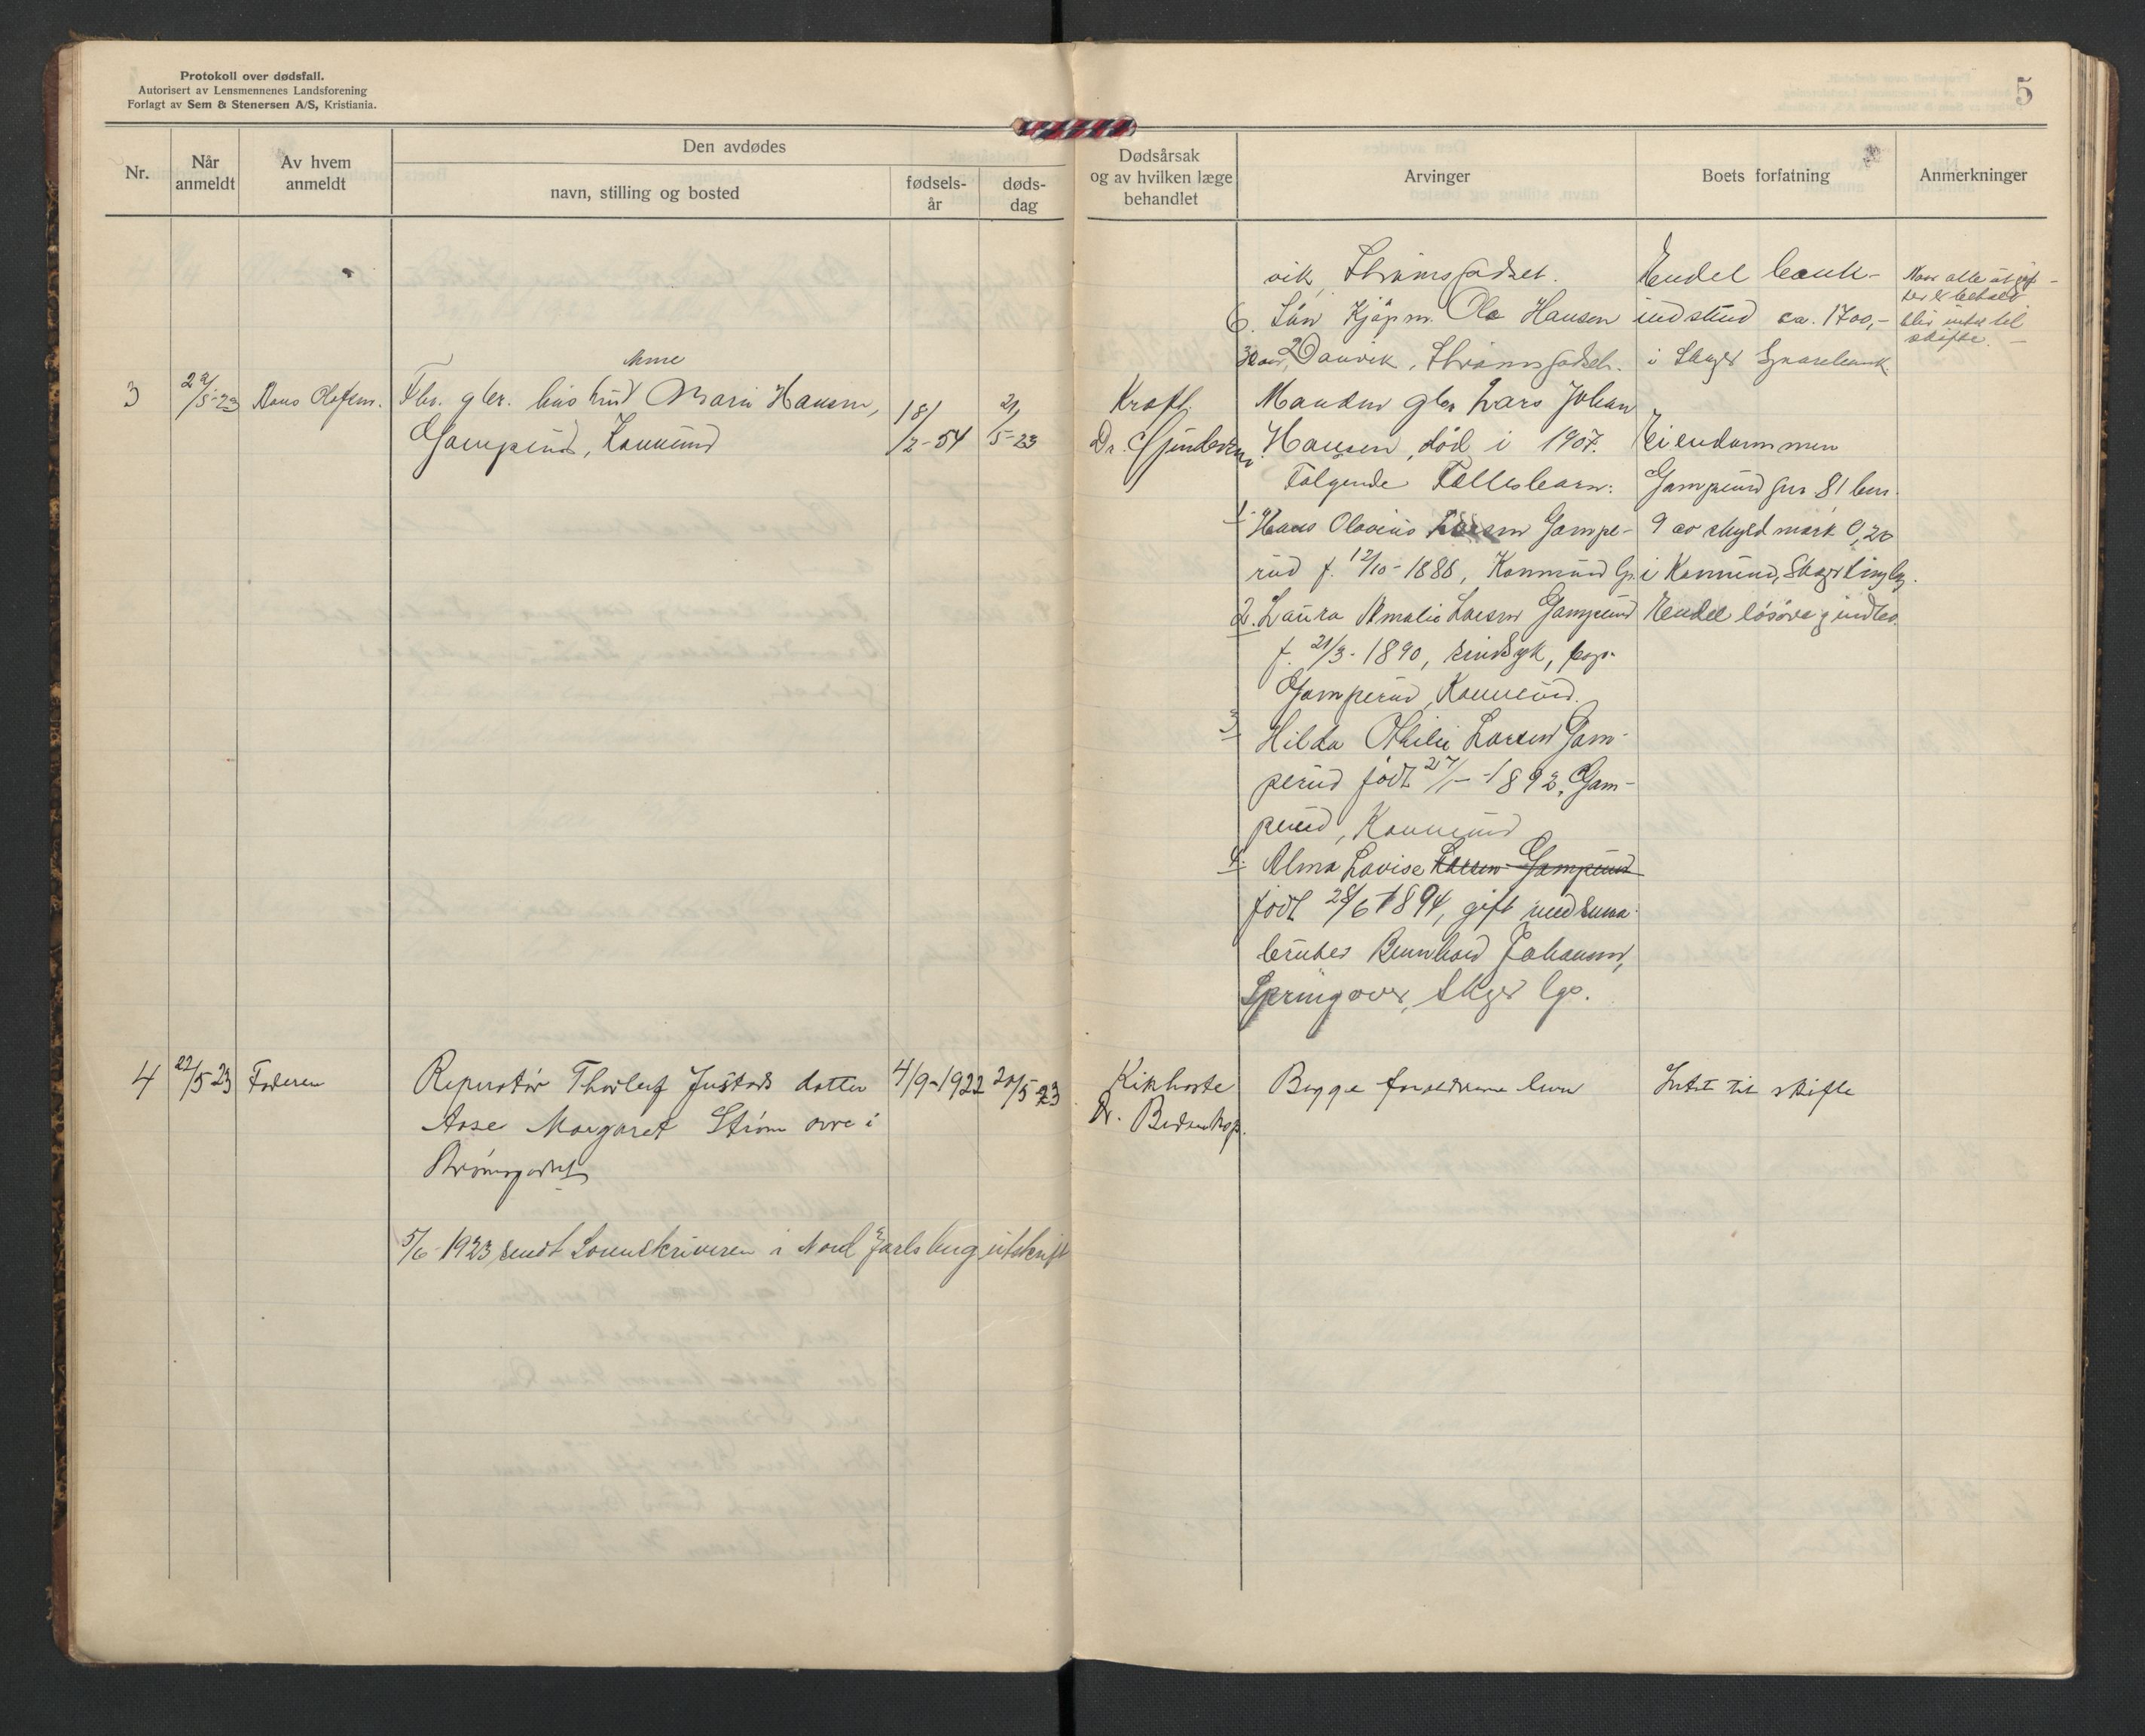 Protokoll over dødsfall.
Autorisert av Lensmennenes Landsforening
Forlagt av Sem & Stenersen A/S, Kristiania.
5
Nr.
Når
anmeldt
Av hvem
anmeldt
Den avdødes
navn, stilling og bosted
fødsels-
år
døds-
dag
Dødsårsak
og av hvilken læge
behandlet
Arvinger
Boets forfatning
Anmerkninger
vik, Strømsgodset.
6. Søn Kjøpm. Ole Hansen
30 aar, Danvik, Strømsgodset.
Endel bank-
indskud ca. 1700,-
i Skoger Sparebank.
Naar alle utgif-
ter er betalt
blir intet til
skifte.
3
/5-23
Hans Olafsen.
Anne
Fhv. gbr. hustru Marie Hansen,
Gamperud, Konnerud
18/
/2-54
21/
5-23
Kræft.
Dr.
Manden gbr Lars Johan
Hansen, død i 1907.
Følgende Fellesbarn:
1. Hans Olavius Larsen Gampe-
rud f. 12/10-1886, Konnerud
2. Laura Amalie Larsen Gamperud
f. 21/3-1890, sindsyk,
Gamperud, Konnerud.
3 Hilda Othilie Larsen Gam-
perud født 27/ 1892, Gam-
perud, Konnerud
4. Alma Lovise Larsen Gamperud
født 28/6 1894, gift med smaa-
bruker Bernhard Johansen,
Springover, Skoger
Eiendommen
Gamperud gnr 81 bnr.
9 av skyld mark 0,20
i Konnerud, Skoger tinglag.
Endel løsøre og indbo.
4
22/5 23
Faderen
Reparatør Thorleif Justads datter
Aase Margaret Strøm øvre i
Strømsgodset
4/9-1922
20/5-23
Kikhoste
Dr.
Begge forældrene lever
Intet til skifte
5/6-1923 sendt Sorenskriveren i Nord Jarlsberg utskrift